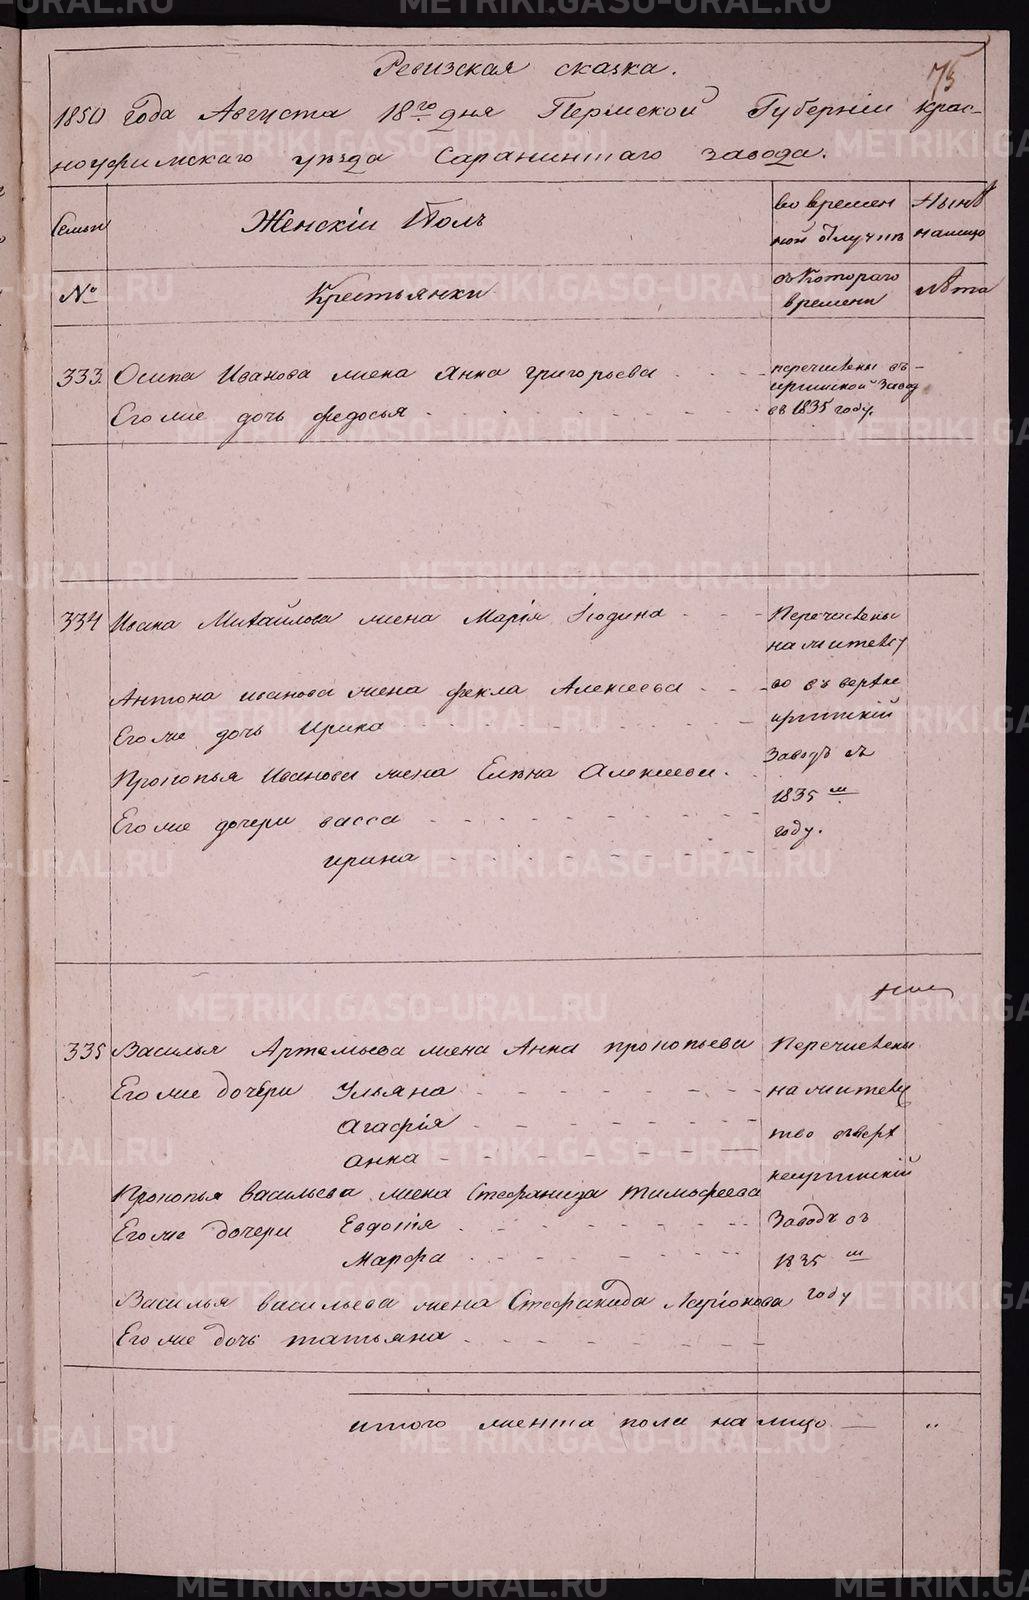 75
Ревизская сказка.
1850 года Августа 18го дня Пермской Губернiи крас-
ноуфимскаго уезда Саранинскаго завода.
Семьи
Женскiи Полъ
во времен
ной отлучкъ
Нынѣ
налицо
№
Крестьянки
съ Котораго
времени
лѣта
333. Осипа Иванова жена Анна григорьева
перечислены въ
иргинской Завод
въ 1835 году.
Его же дочь федосья
334 Ивана Михайлова жена Марiя Iюдина
Перечислены
на жителс
Антона иванова жена фекла Алексеева
во въ верхне
Его же дочь Ирина
иргинскiй
Прокопья Иванова жена Елена Алексеева.
Заводъ въ
Его же дочери васса
1835 м
году.
ирина
335 Василья Артемьева жена Анна прокопьева
Перечислены
Его же дочери Ульяна
на жителс
Агафiя
тво въверх
анна
неиргинскiй
Прокопья васильева жена Стефанида тимофеева
Его же дочери Евдокiя
Заводъ въ
Марфа
1835 м
Василья васильева жена СтефанидаЛарiонова
году
Его же дочь татьяна
итого женска пола на лицо — "
METRIKI.GASO-URAL.RU